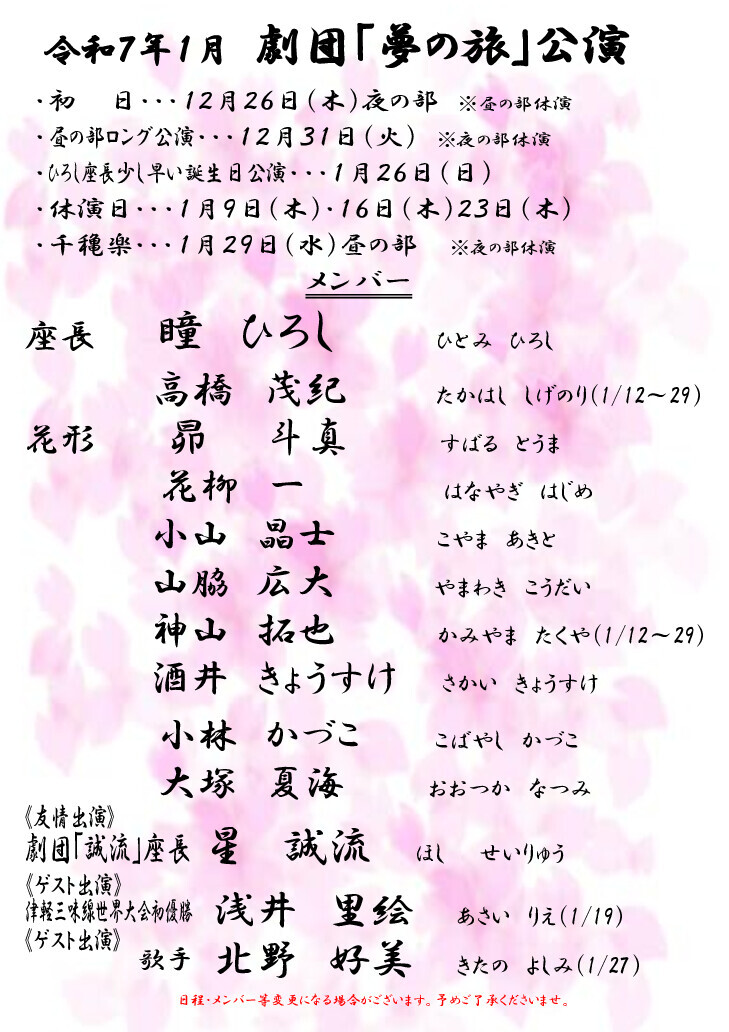 令和7年1月 劇団「夢の旅」公演
・初 日・・・12月26日(木)夜の部 ※昼の部休演
・昼の部ロング公演・・・12月31日(火) ※夜の部休演
・ひろし座長少し早い誕生日公演・・・1月26日(日)
・休演日・・・1月9日(木)・16日(木)23日(木)
・千穐楽・・・1月29日(水)昼の部 ※夜の部休演
メンバー
座長 瞳 ひろし ひとみ ひろし
高橋 茂紀 たかはし しげのり(1/12～29)
花形 昴 斗真 すばる とうま
花柳 一 はなやぎ はじめ
小山 晶士 こやま あきと
山脇 広大 やまわき こうだい
神山 拓也 かみやま たくや(1/12～29)
酒井 きょうすけ さかい きょうすけ
小林 かづこ こばやし かづこ
大塚 夏海 おおつか なつみ
《友情出演》
劇団「誠流」座長 星 誠流 ほし せいりゅう
《ゲスト出演》
津軽三味線世界大会初優勝 浅井 里絵 あさい りえ(1/19)
《ゲスト出演》
歌手 北野 好美 きたの よしみ(1/27)
日程・メンバー等変更になる場合がございます。予めご了承くださいませ。